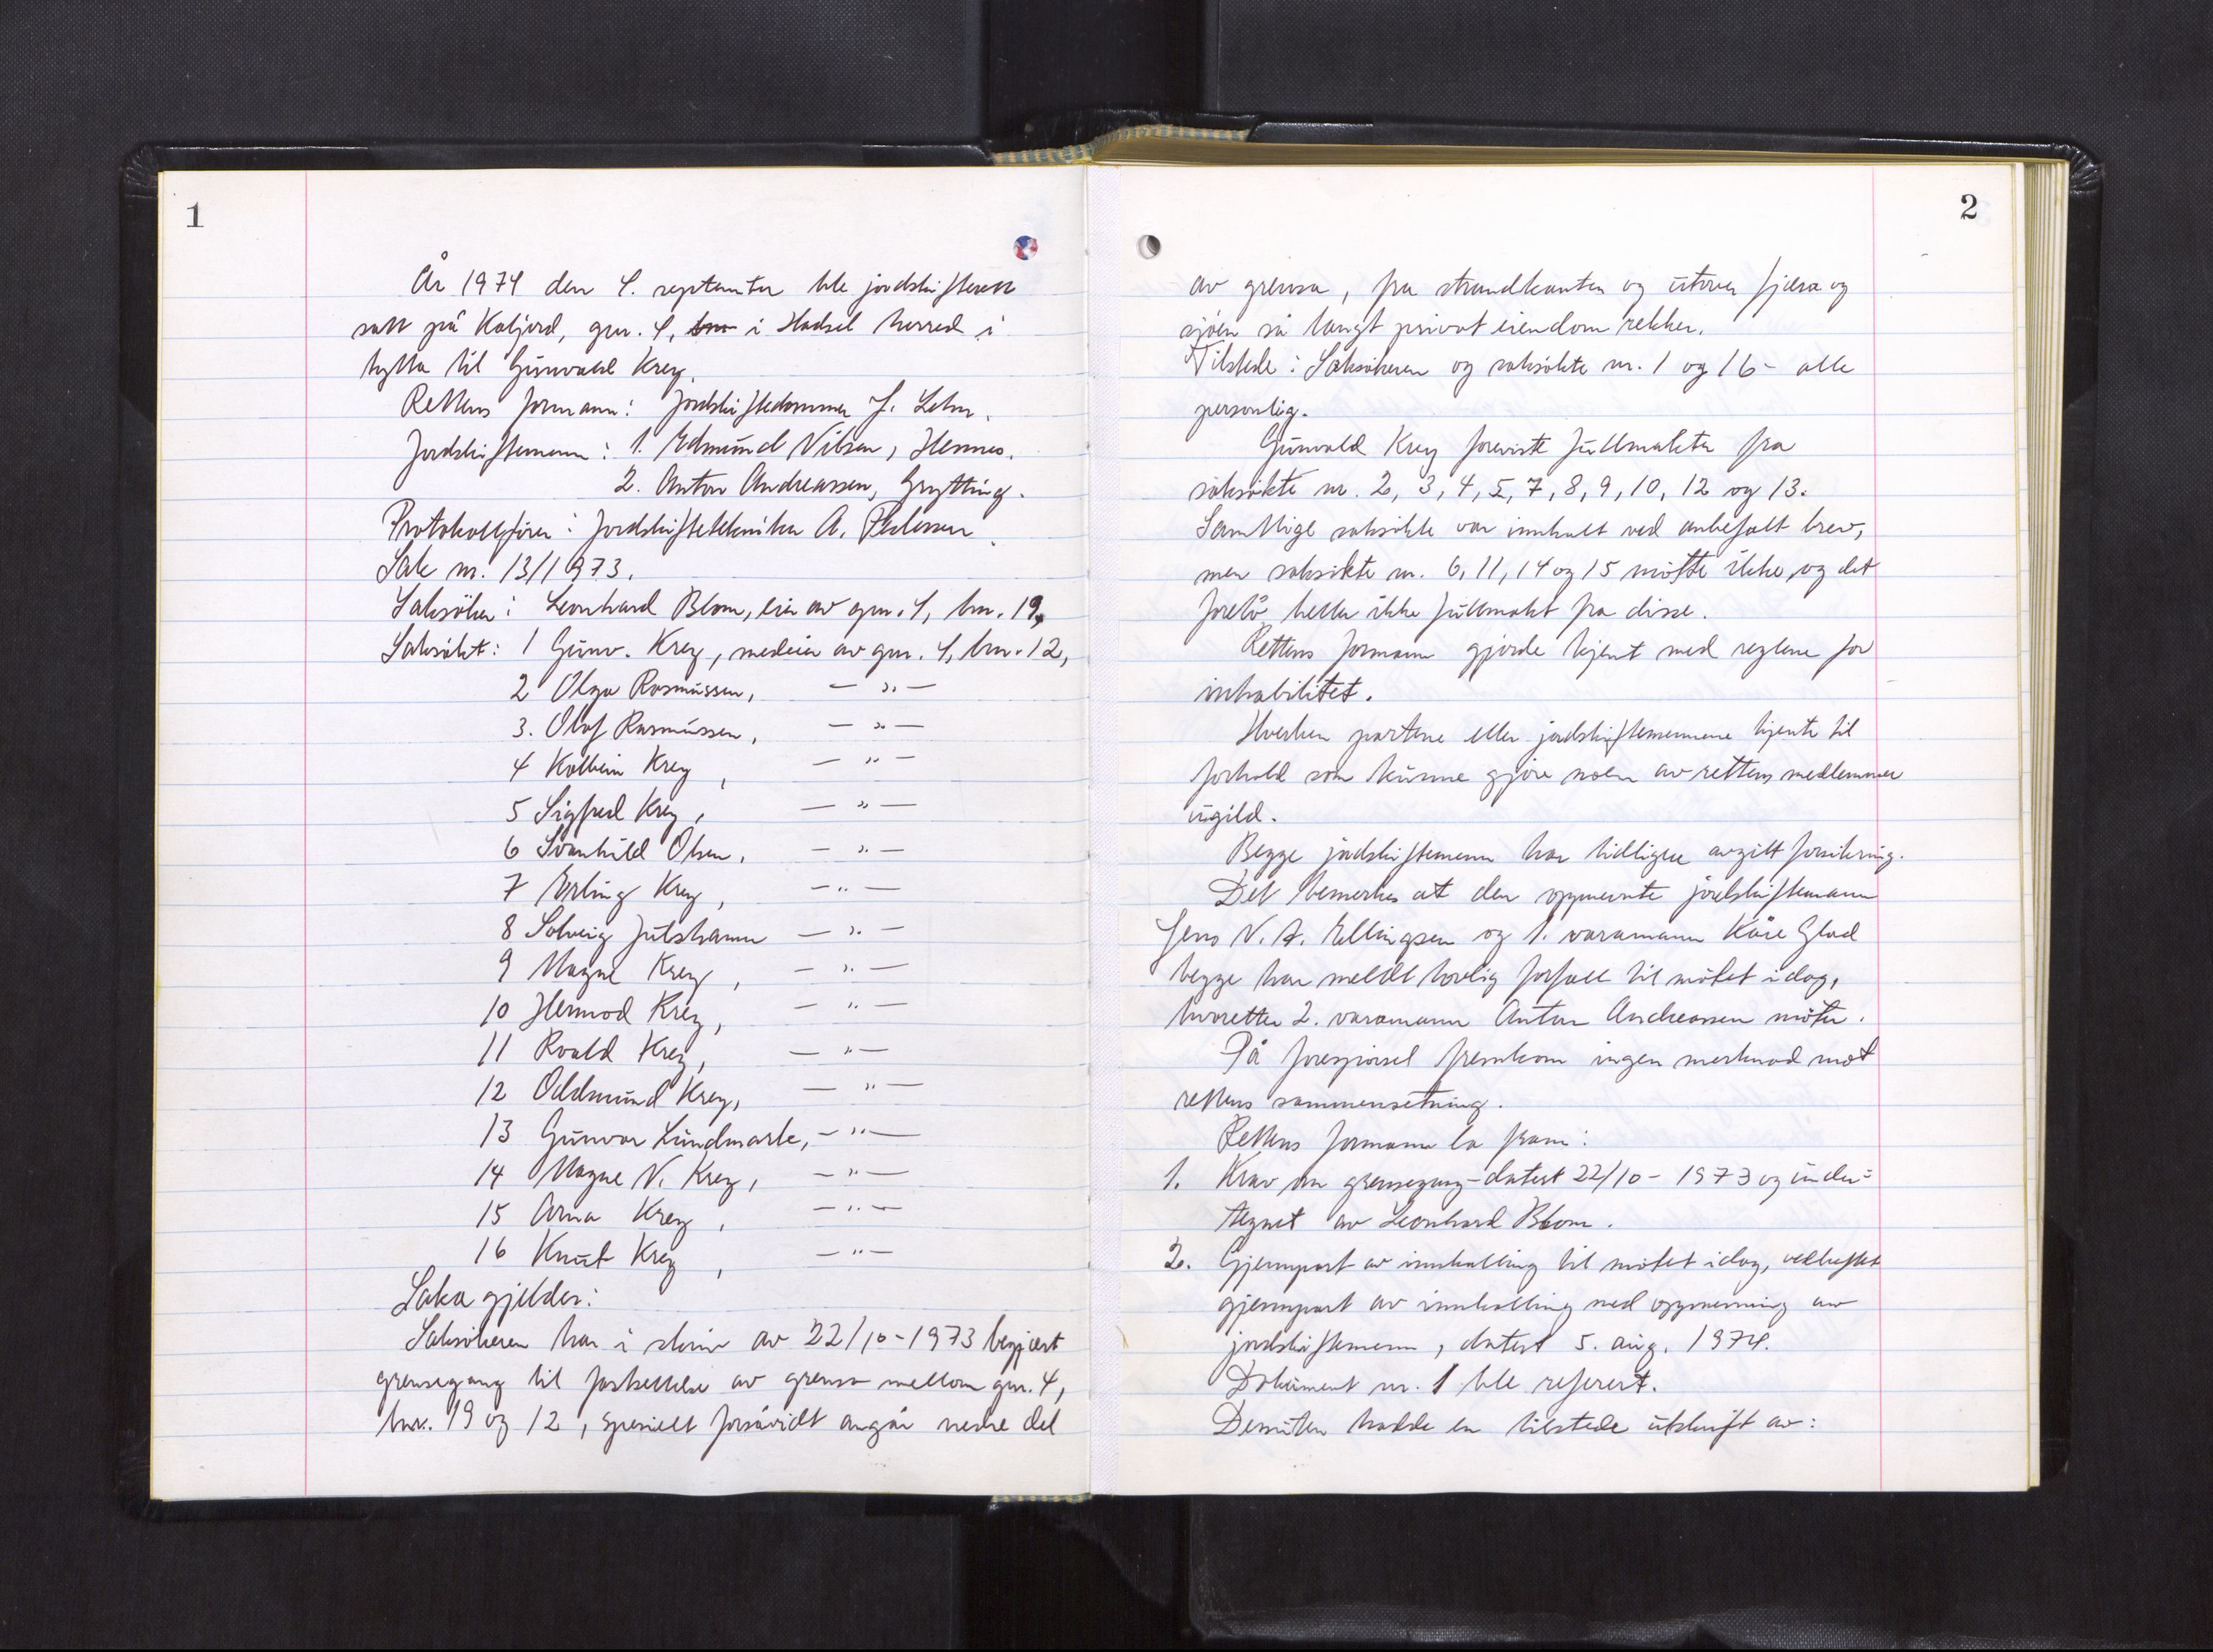 1
År 1974 den 4. september ble jordskifterett
satt på Kaljord, gnr. 4, bnr i Hadsel herred i
hytta til Gunvald Krey.
Rettens formann: Jordskiftedommer J. Lehn.
Jordskiftemenn: 1. Edmund Nilsen, Hennes.
2. Anton Andreassen, Grytting.
Protokollfører: Jordskiftetekniker A. Pedersen
Sak nr. 13/1973.
Saksøker: Leonhard Blom, eier av gnr. 4, bnr. 19,
Saksøkt: 1 Gunv. Krey, medeier av gnr. 4, bnr. 12,
2 Olga Rasmussen, — " —
3. Olaf Rasmussen, — " —
4 Kolbein Krey, — " —
5 Sigfred Krey, — " —
6 Svanhild Olsen, — " —
7 Erling Krey, — " —
8 Solveig Julshamn — " —
9 Magne Krey, — " —
10 Hermod Krey, — " —
11 Roald Krey, — " —
12 Oddmund Krey, — " —
13 Gunvor Lundmark, — " —
14 Magne N. Krey, — " —
15 Arna Krey, — " —
16 Knut Krey, — " —
Saka gjelder:
Saksøkeren har i skriv av 22/10-1973 begjært
grensegang til fastsettelse av grensa mellom gnr. 4,
bnr. 19 og 12, spesielt forsåvidt angår nedre del
2
av grensa, fra strandkanten og utover fjæra og
sjøen så langt privat eiendom rekker.
Tilstede: Saksøkeren og saksøkte nr. 1 og 16 - alle
personlig.
Gunvald Krey foreviste fullmakter fra
saksøkte nr. 2, 3, 4, 5, 7, 8, 9, 10, 12 og 13.
Samtlige saksøkte var innkalt ved anbefalt brev,
men saksøkte nr. 6, 11, 14 og 15 møtte ikke, og det
forelå heller ikke fullmakt fra disse.
Rettens formann gjorde kjent med reglene for
inhabilitet.
Hverken partene eller jordskiftemennene kjente til
forhold som kunne gjøre noen av rettens medlemmer
ugild.
Begge jordskiftemenn har tidligere avgitt forsikring.
Det bemerkes at den oppnevnte jordskiftemann
Jens N. A. Ellingsen og 1. varamann Kåre Glad
begge har meldt lovlig forfall til møtet idag,
hvoretter 2. varamann Anton Andreassen møter.
På forespørsel fremkom ingen merknad mot
rettens sammensetning.
Rettens formann la fram:
1. Krav om grensegang - datert 22/10 - 1973 og under-
tegnet av Leonhard Blom.
2. Gjenpart av innkalling til møtet idag, vedheftet
gjenpart av innkalling med oppnevning av
jordskiftemenn, datert 5. aug. 1974.
Dokument nr. 1 ble referert.
Dessuten hadde en tilstede utskrift av: